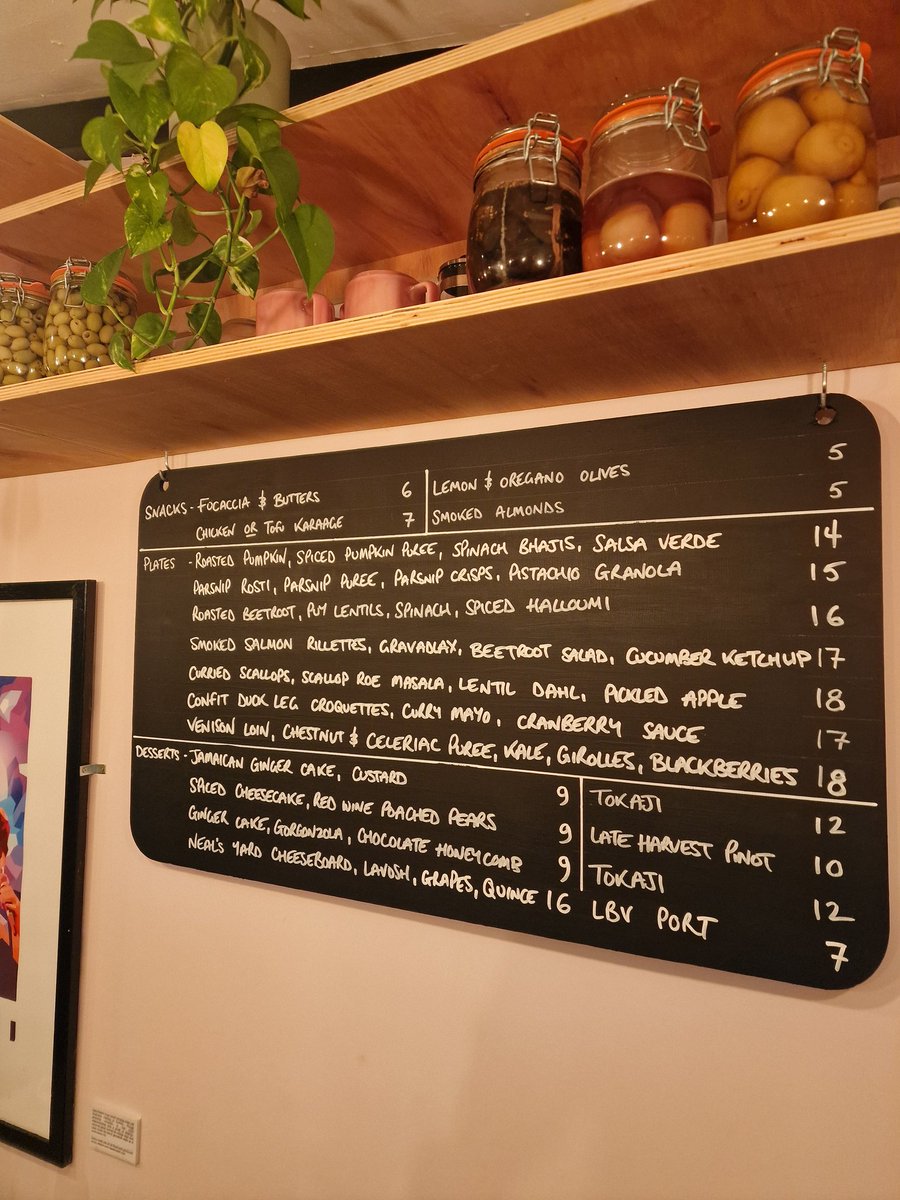 SNACKS - FOCACCIA & BUTTERS 6
CHICKEN OR TOFU KARAAGE 7
LEMON & OREGANO OLIVES 5
SMOKED ALMONDS 5
PLATES - ROASTED PUMPKIN, SPICED PUMPKIN PUREE, SPINACH BHAJIS, SALSA VERDE 14
PARSNIP ROSTI, PARSNIP PUREE, PARSNIP CRISPS, PISTACHIO GRANOLA 15
ROASTED BEETROOT, PUY LENTILS, SPINACH, SPICED HALLOUMI 16
SMOKED SALMON RILLETTES, GRAVADLAX, BEETROOT SALAD, CUCUMBER KETCHUP 17
CURRIED SCALLOPS, SCALLOP ROE MASALA, LENTIL DAHL, PICKLED APPLE 18
CONFIT DUCK LEG CROQUETTES, CURRY MAYO, CRANBERRY SAUCE 17
VENISON LOIN, CHESTNUT & CELERIAC PUREE, KALE, GIROLLES, BLACKBERRIES 18
DESSERTS - JAMAICAN GINGER CAKE, CUSTARD 9
SPICED CHEESECAKE, RED WINE POACHED PEARS 9
GINGER CAKE, GORGONZOLA, CHOCOLATE HONEYCOMB 9
NEAL'S YARD CHEESEBOARD, LAVOSH, GRAPES, QUINCE 16
TOKAJI 12
LATE HARVEST PINOT 10
TOKAJI 12
LBV PORT 7